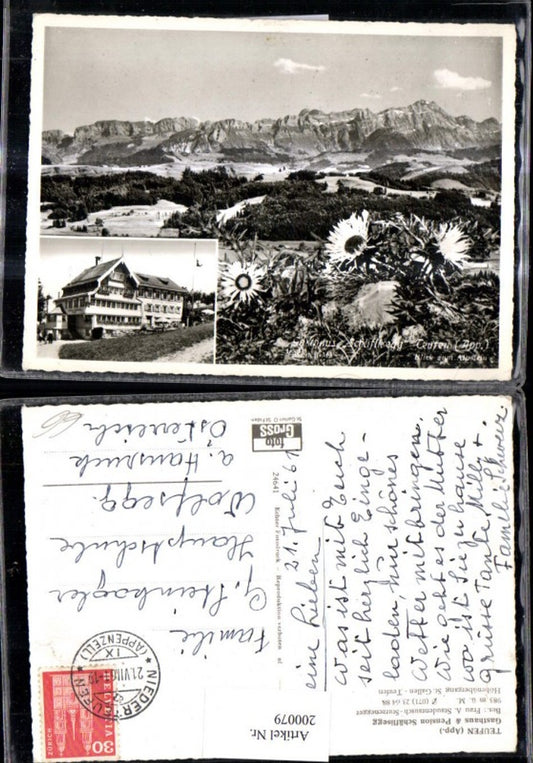 Gasthaus „Schäflisegg" Teufen (App.)
Blick zum Alpstein
TEUFEN (App.)
Gasthaus & Pension Schäflisegg
Bes.: Frau A. Staudenrausch-Sturzenegger
985 m ü. M. (071) 23 64 88
Höhenübergang St. Gallen - Teufen
21. Juli 61
eine Lieben
was ist mit Euch
seit herzlich Einge-
laden, nur schönes
Wetter mitbringen.
Wie geht es der Mutter
wo ist Sie zu hause
grüsse Tante Milly +
Familie Schweiz
24641
foto
GROSS
St. Gallen
Familie
G. Steinkogler
Hauptschule
Wolfsegg
a. Hausruck
Östereich
NIEDERTEUFEN
(APPENZELL)
21.VII.61
IX
HELVETIA
30
ZÜRICH
Artikel Nr.
200079